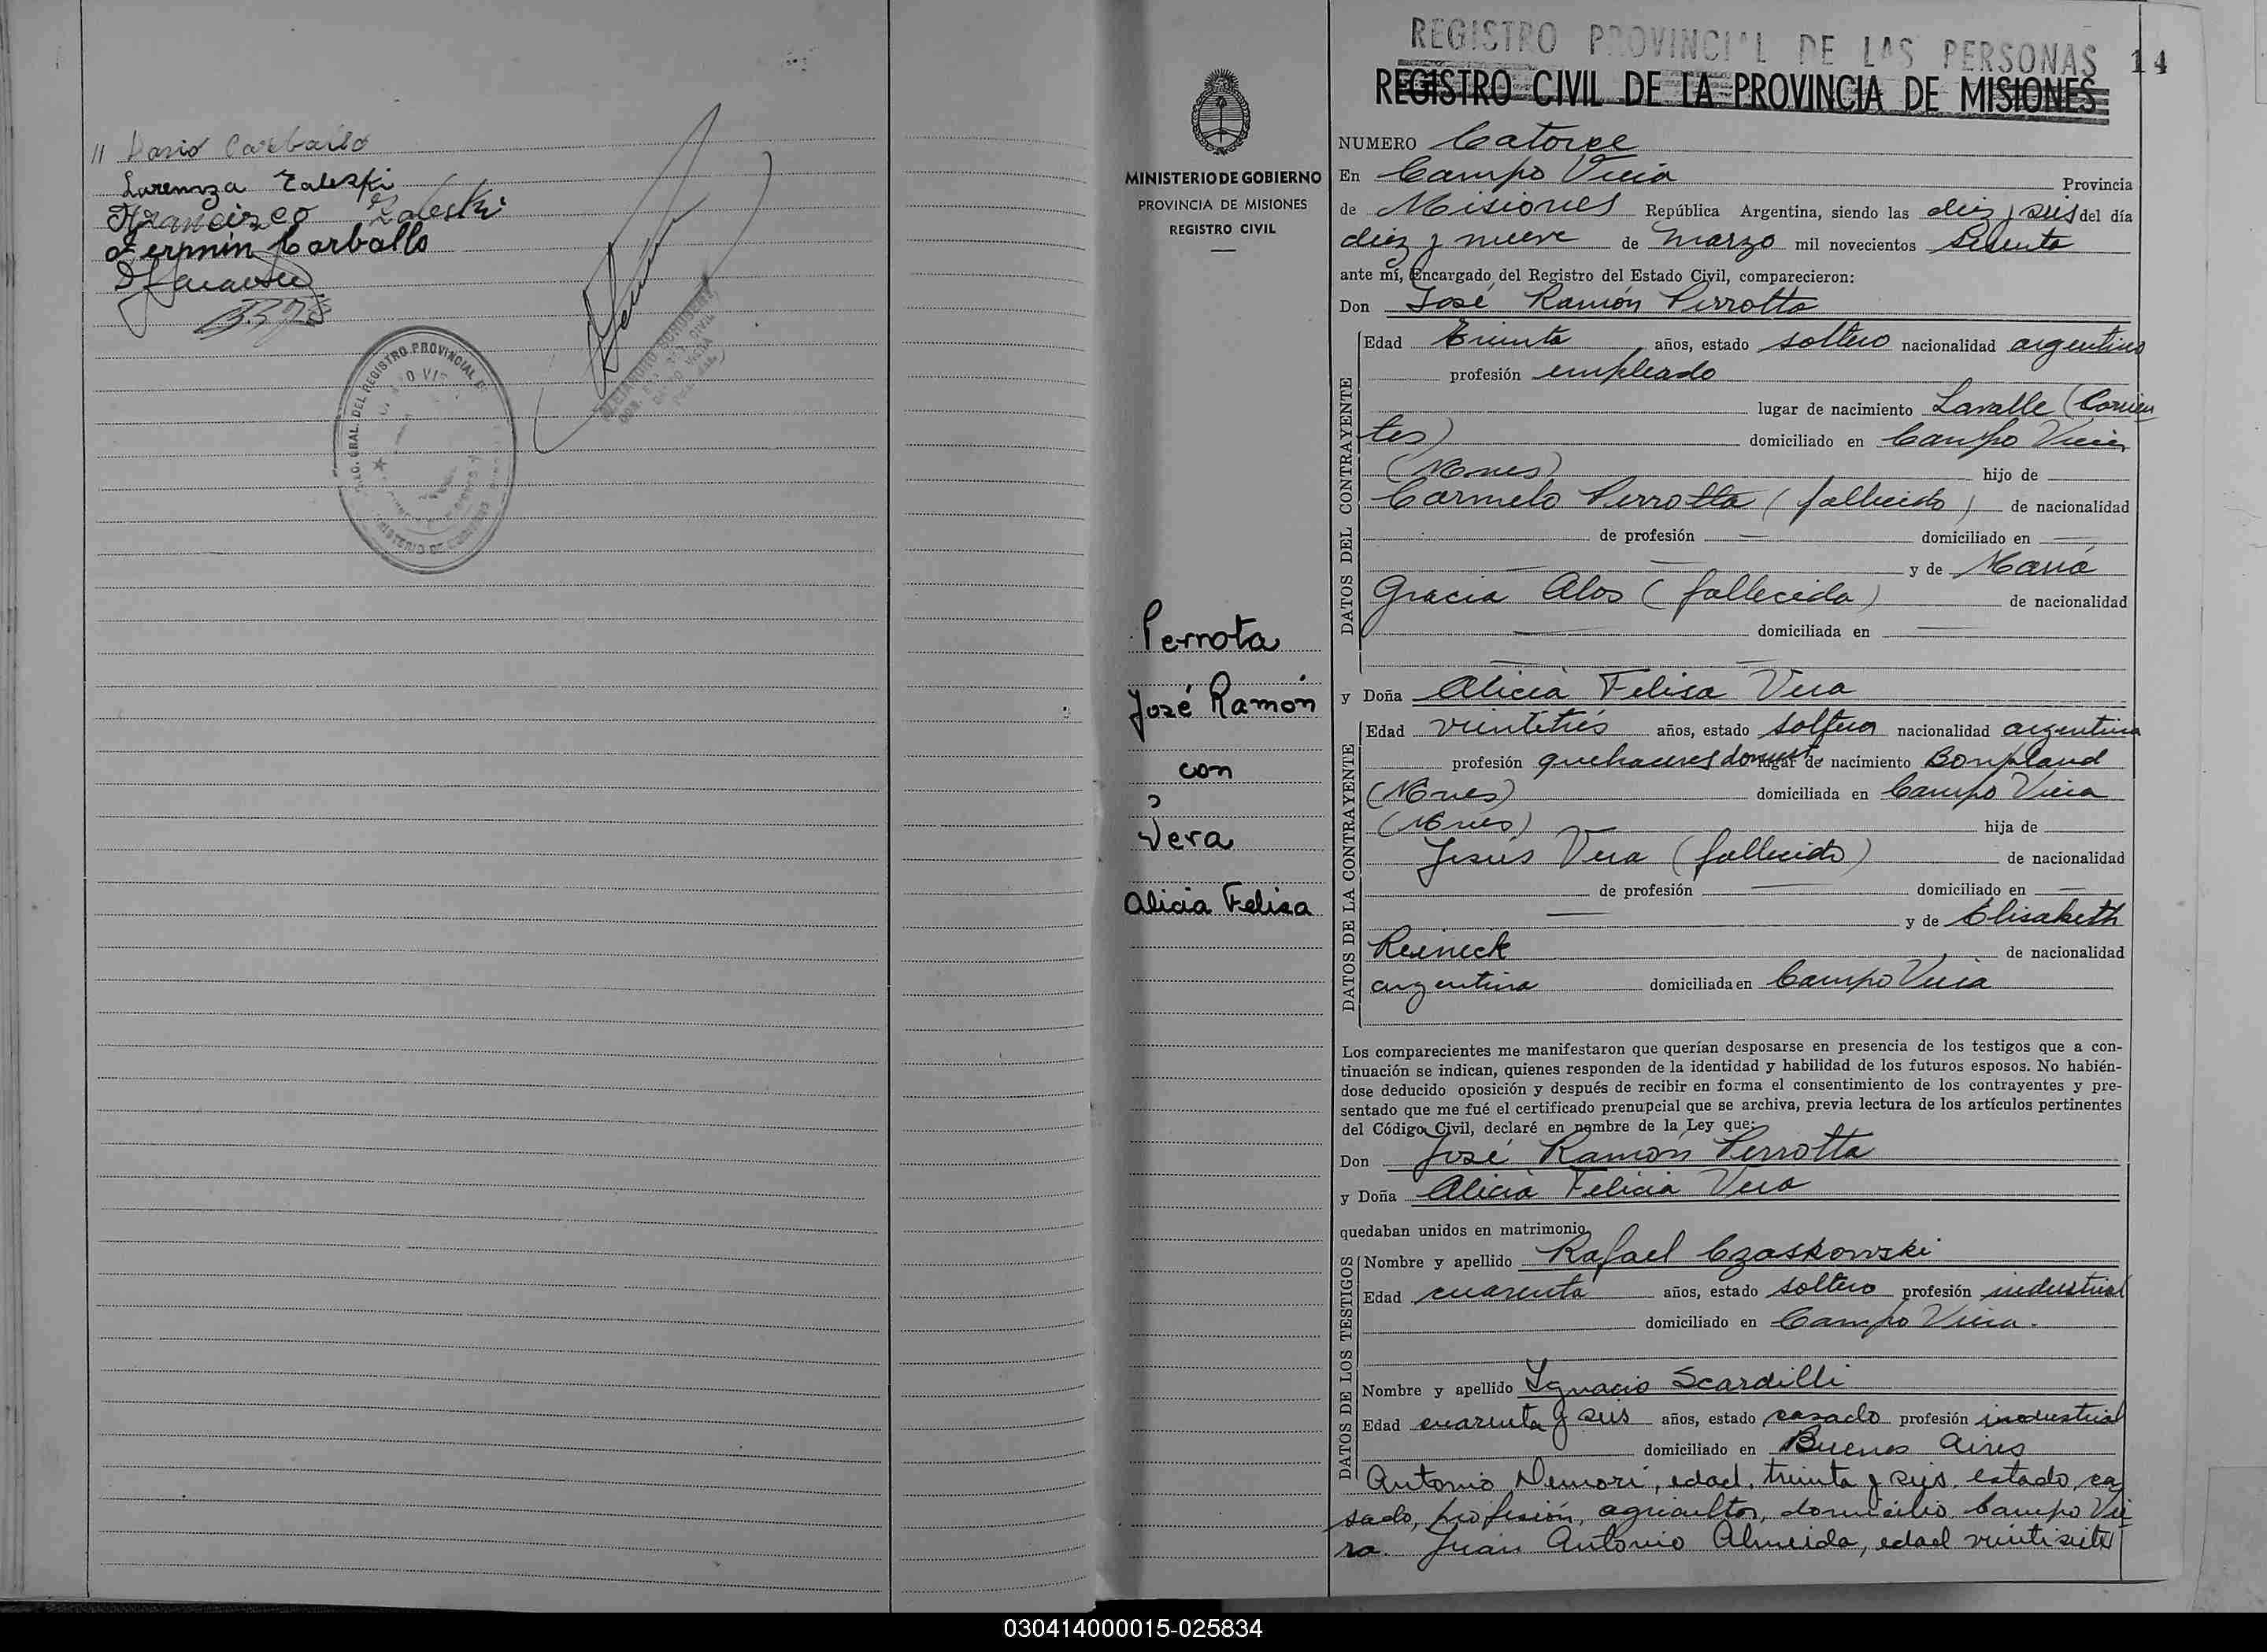 " Dario Carballo
Lorenza Zaleski
Francisco Zaleski
Fermín Carballo
REGISTRO PROVINCIAL DE LAS PERSONAS
14
REGISTRO CIVIL DE LA PROVINCIA DE MISIONES
MINISTERIO DE GOBIERNO
PROVINCIA DE MISIONES
REGISTRO CIVIL
Perrota
José Ramón
con
Vera
Alicia Felisa
NUMERO Catorce
En Campo Viera Provincia
de Misiones República Argentina, siendo las diez y seis del día
diez y nueve de marzo mil novecientos sesenta
ante mí, Encargado del Registro del Estado Civil, comparecieron:
Don José Ramón Perrotta
DATOS DEL CONTRAYENTE
Edad treinta años, estado soltero nacionalidad argentino
profesión empleado
lugar de nacimiento Lavalle (Corrien
tes) domiciliado en Campo Viera
(Mnes) hijo de
Carmelo Perrotta (fallecido) de nacionalidad
de profesión — domiciliado en —
y de María
Gracia Alos (fallecida) de nacionalidad
domiciliada en —
y Doña Alicia Felisa Vera
DATOS DE LA CONTRAYENTE
Edad veintitrés años, estado soltera nacionalidad argentina
profesión quehaceres domest. lugar de nacimiento Bonpland
(Mnes) domiciliada en Campo Viera
(Mnes) hija de
Jesús Vera (fallecido) de nacionalidad
de profesión — domiciliado en —
y de Elisabeth
Reineck de nacionalidad
argentina domiciliada en Campo Viera
Los comparecientes me manifestaron que querían desposarse en presencia de los testigos que a con-
tinuación se indican, quienes responden de la identidad y habilidad de los futuros esposos. No habién-
dose deducido oposición y después de recibir en forma el consentimiento de los contrayentes y pre-
sentado que me fué el certificado prenupcial que se archiva, previa lectura de los artículos pertinentes
del Código Civil, declaré en nombre de la Ley que:
Don José Ramón Perrotta
y Doña Alicia Felicia Vera
quedaban unidos en matrimonio.
DATOS DE LOS TESTIGOS
Nombre y apellido Rafael Czaskowski
Edad cuarenta años, estado soltero profesión industrial
domiciliado en Campo Viera.
Nombre y apellido Ignacio Scardilli
Edad cuarenta y seis años, estado casado profesión industrial
domiciliado en Buenos Aires
Antonio Nemori, edad, treinta y seis, estado, ca
sado, profesión, agricultor, domicilio Campo Vie
ra. Juan Antonio Almeida, edad veintisiete
030414000015-025834